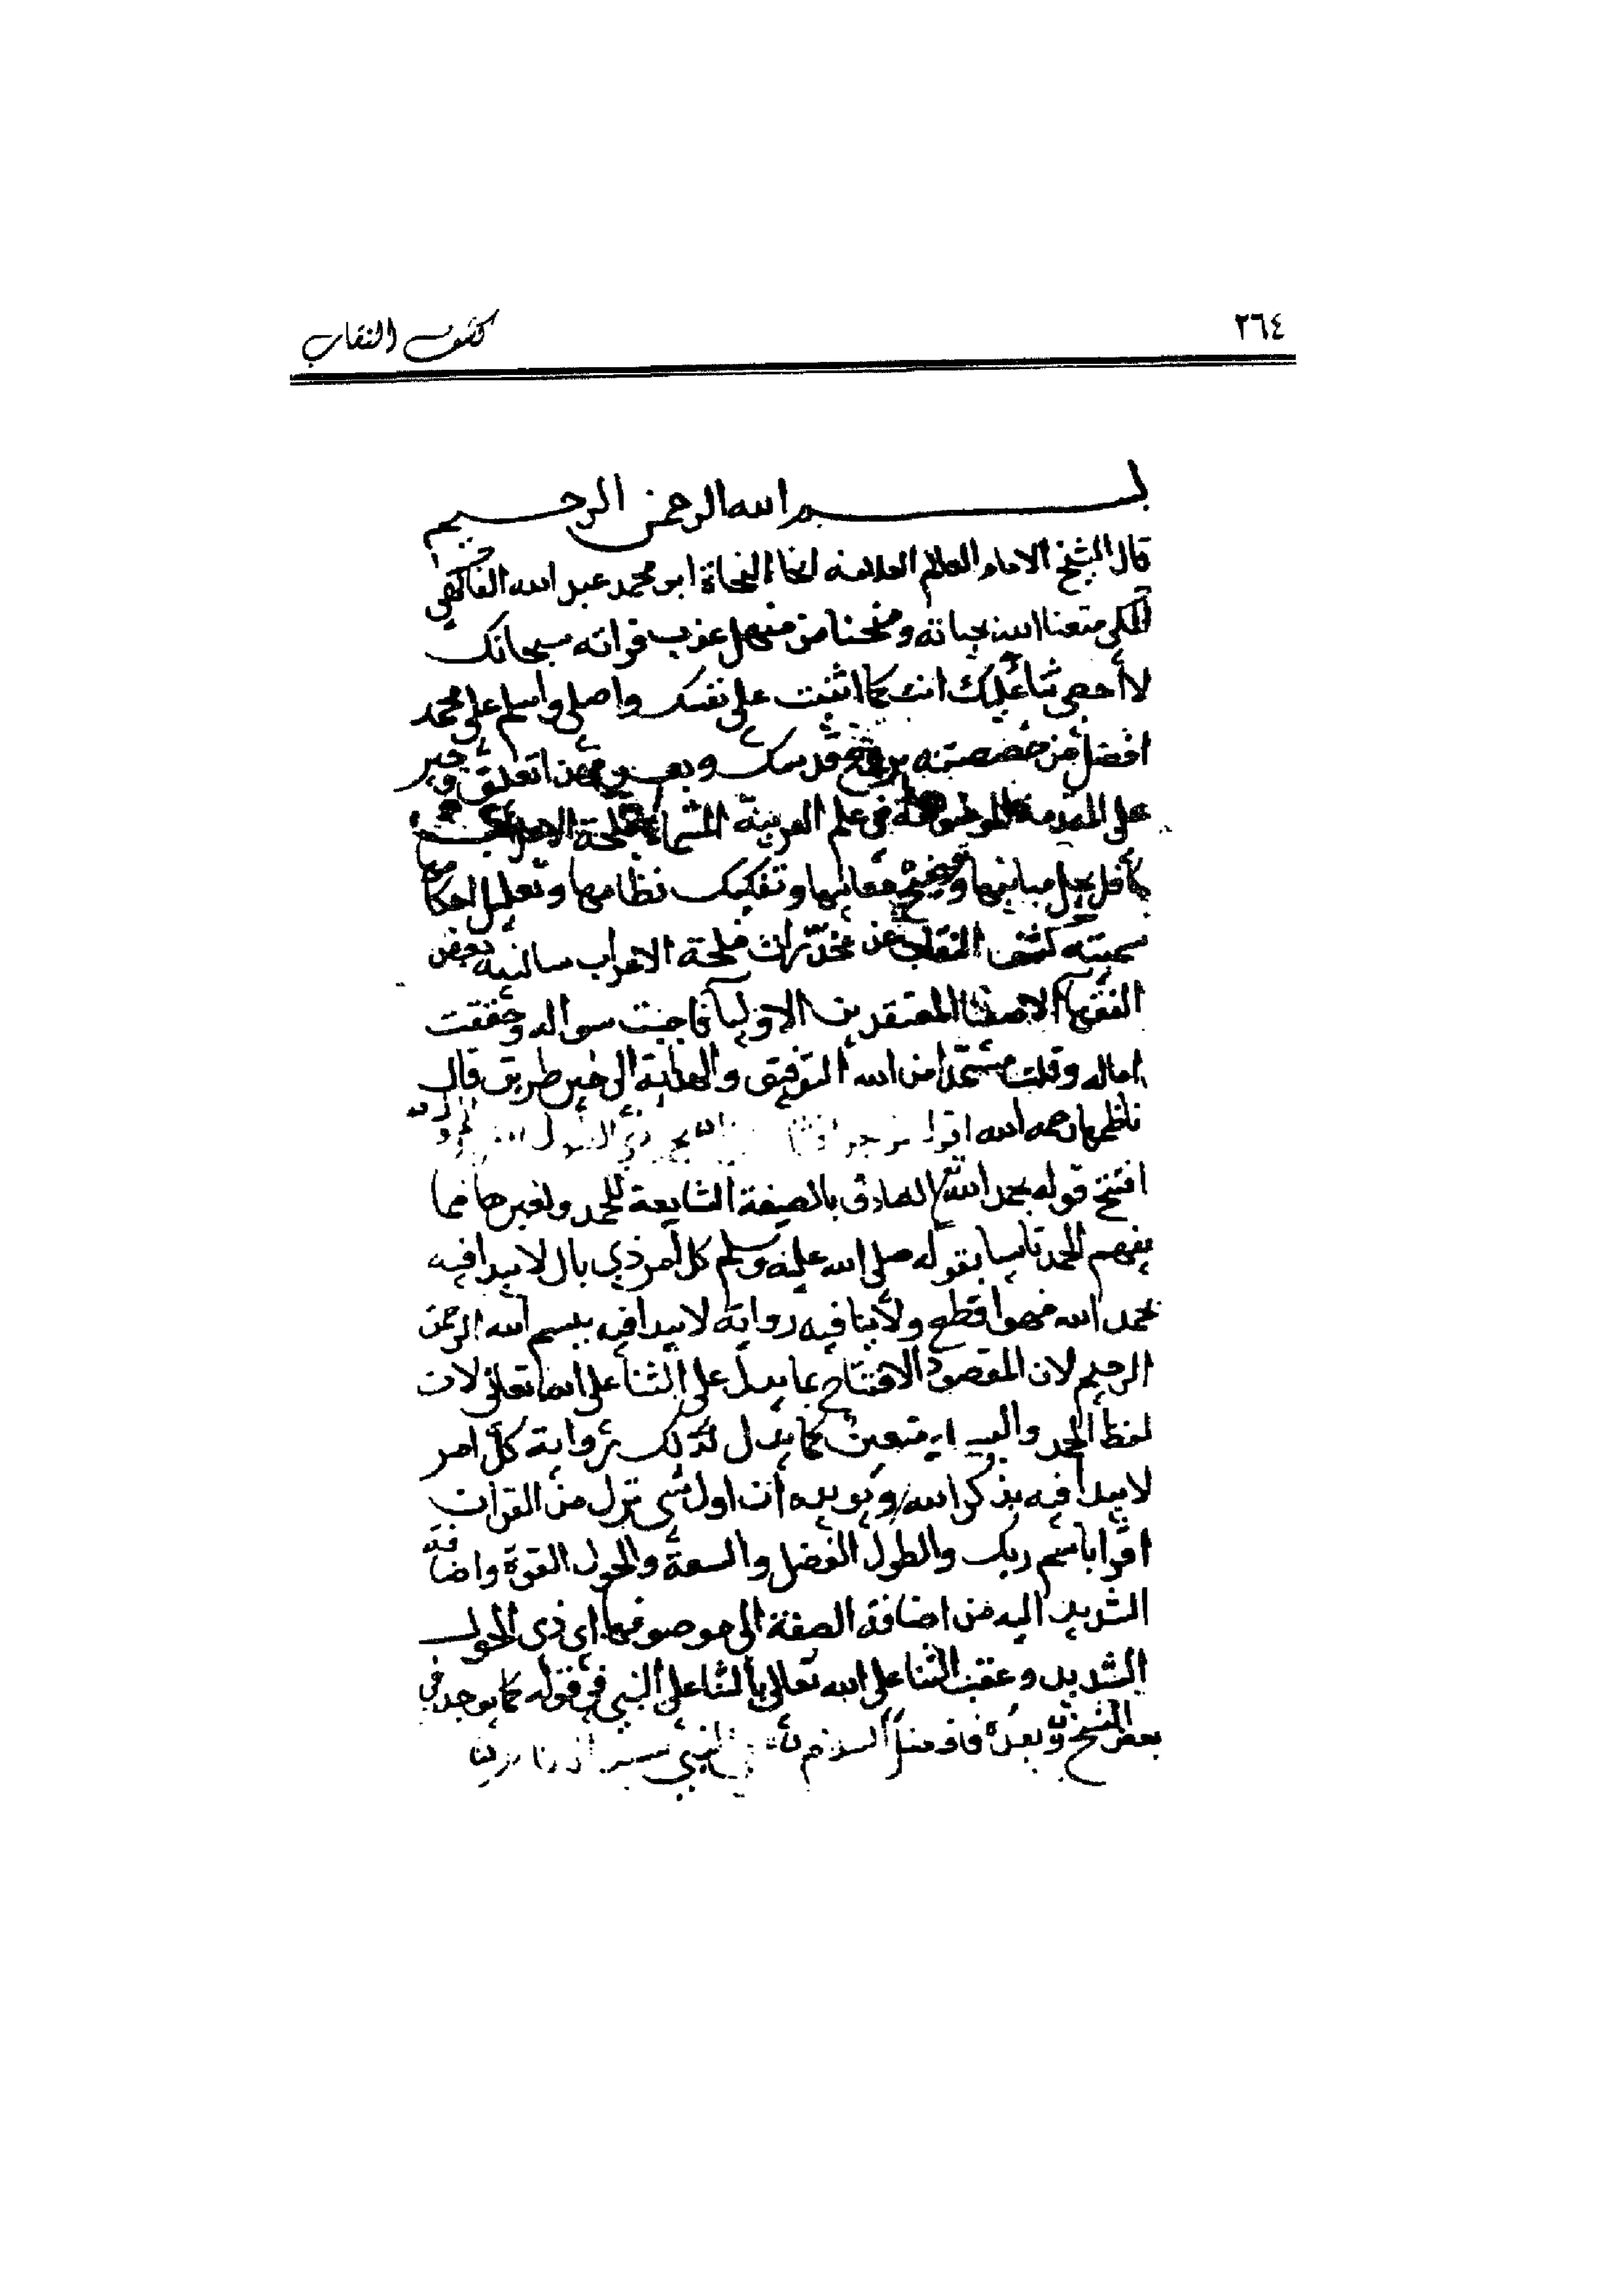 ٢٦٤
كشف النقاب
بسم الله الرحمن الرحيم
قال الشيخ الامام العالم العلامه النحاة ابو محمد عبد الله الفاكهي
المكي متعنا الله بحياته ومنحنا من منهل عذب فراته سبحانك
لا أحصي ثنا عليك انت كما اثنيت على نفسك واصلي واسلم على محمد
افضل من خصصته بروح قدسك وبعد فهذا تعليق وجيز
على المقدمة الموضوعة في علم العربية المسماة بملحة الاعراب
كافل بحل مبانيها وتوضيح معانيها وتفكيك نظامها وتعليل احكامها
سميته كشف النقاب عن مخدرات ملحة الاعراب سالنيه بعض
الفقها الاصفيا المعتقدين الاوليا فاجبت سواله وحققت
اماله وقلت مستمدا من الله التوفيق والهداية الى خير طريق قال
ناظمها رحمه الله اقول من بعد
افتتح قوله بحمد الله الصادق بالصيغة الشايعة للحمد ولغيرها مما
يفهم الحمد تاسيا بقوله صلى الله عليه وسلم كل امر ذي بال لا يبدا فيه
بحمد الله فهو اقطع ولا ينافيه رواية لا يبدا فيه ببسم الله الرحمن
الرحيم لان المقصود الافتتاح بما يدل على الثنا على الله تعالى لان
لفظ الحمد متعين كما يدل لذلك رواية كل امر
لا يبدا فيه بذكر الله ويويده أن اول شي نزل من القران
اقرا باسم ربك والطول الفضل والسعة والحول القوة واضافة
الشديد اليه من اضافة الصفة الى موصوفها اي ذي الحول
الشديد وعقب الثنا على الله تعالى بالثنا على النبي في قوله كما يوجد في
بعض النسخ وبعده فافضل السلام النبي سيد